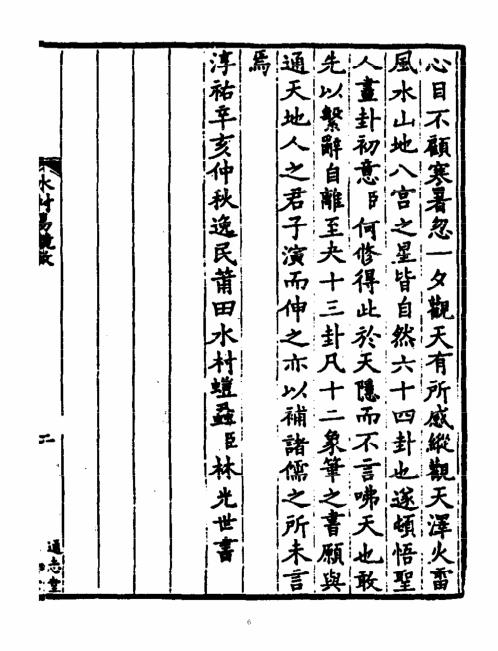 心目不顧寒暑忽一夕觀天有所感縱觀天澤火雷
風水山地八宮之星皆自然六十四卦也遂頓悟聖
人畫卦初意臣何修得此於天隱而不言咈天也敢
先以繫辭自離至夬十三卦凡十二象筆之書願與
通天地人之君子演而伸之亦以補諸儒之所未言
焉
淳祐辛亥仲秋逸民莆田水村螘蝨臣林光世書
水村易鏡敘
二
通志堂
6